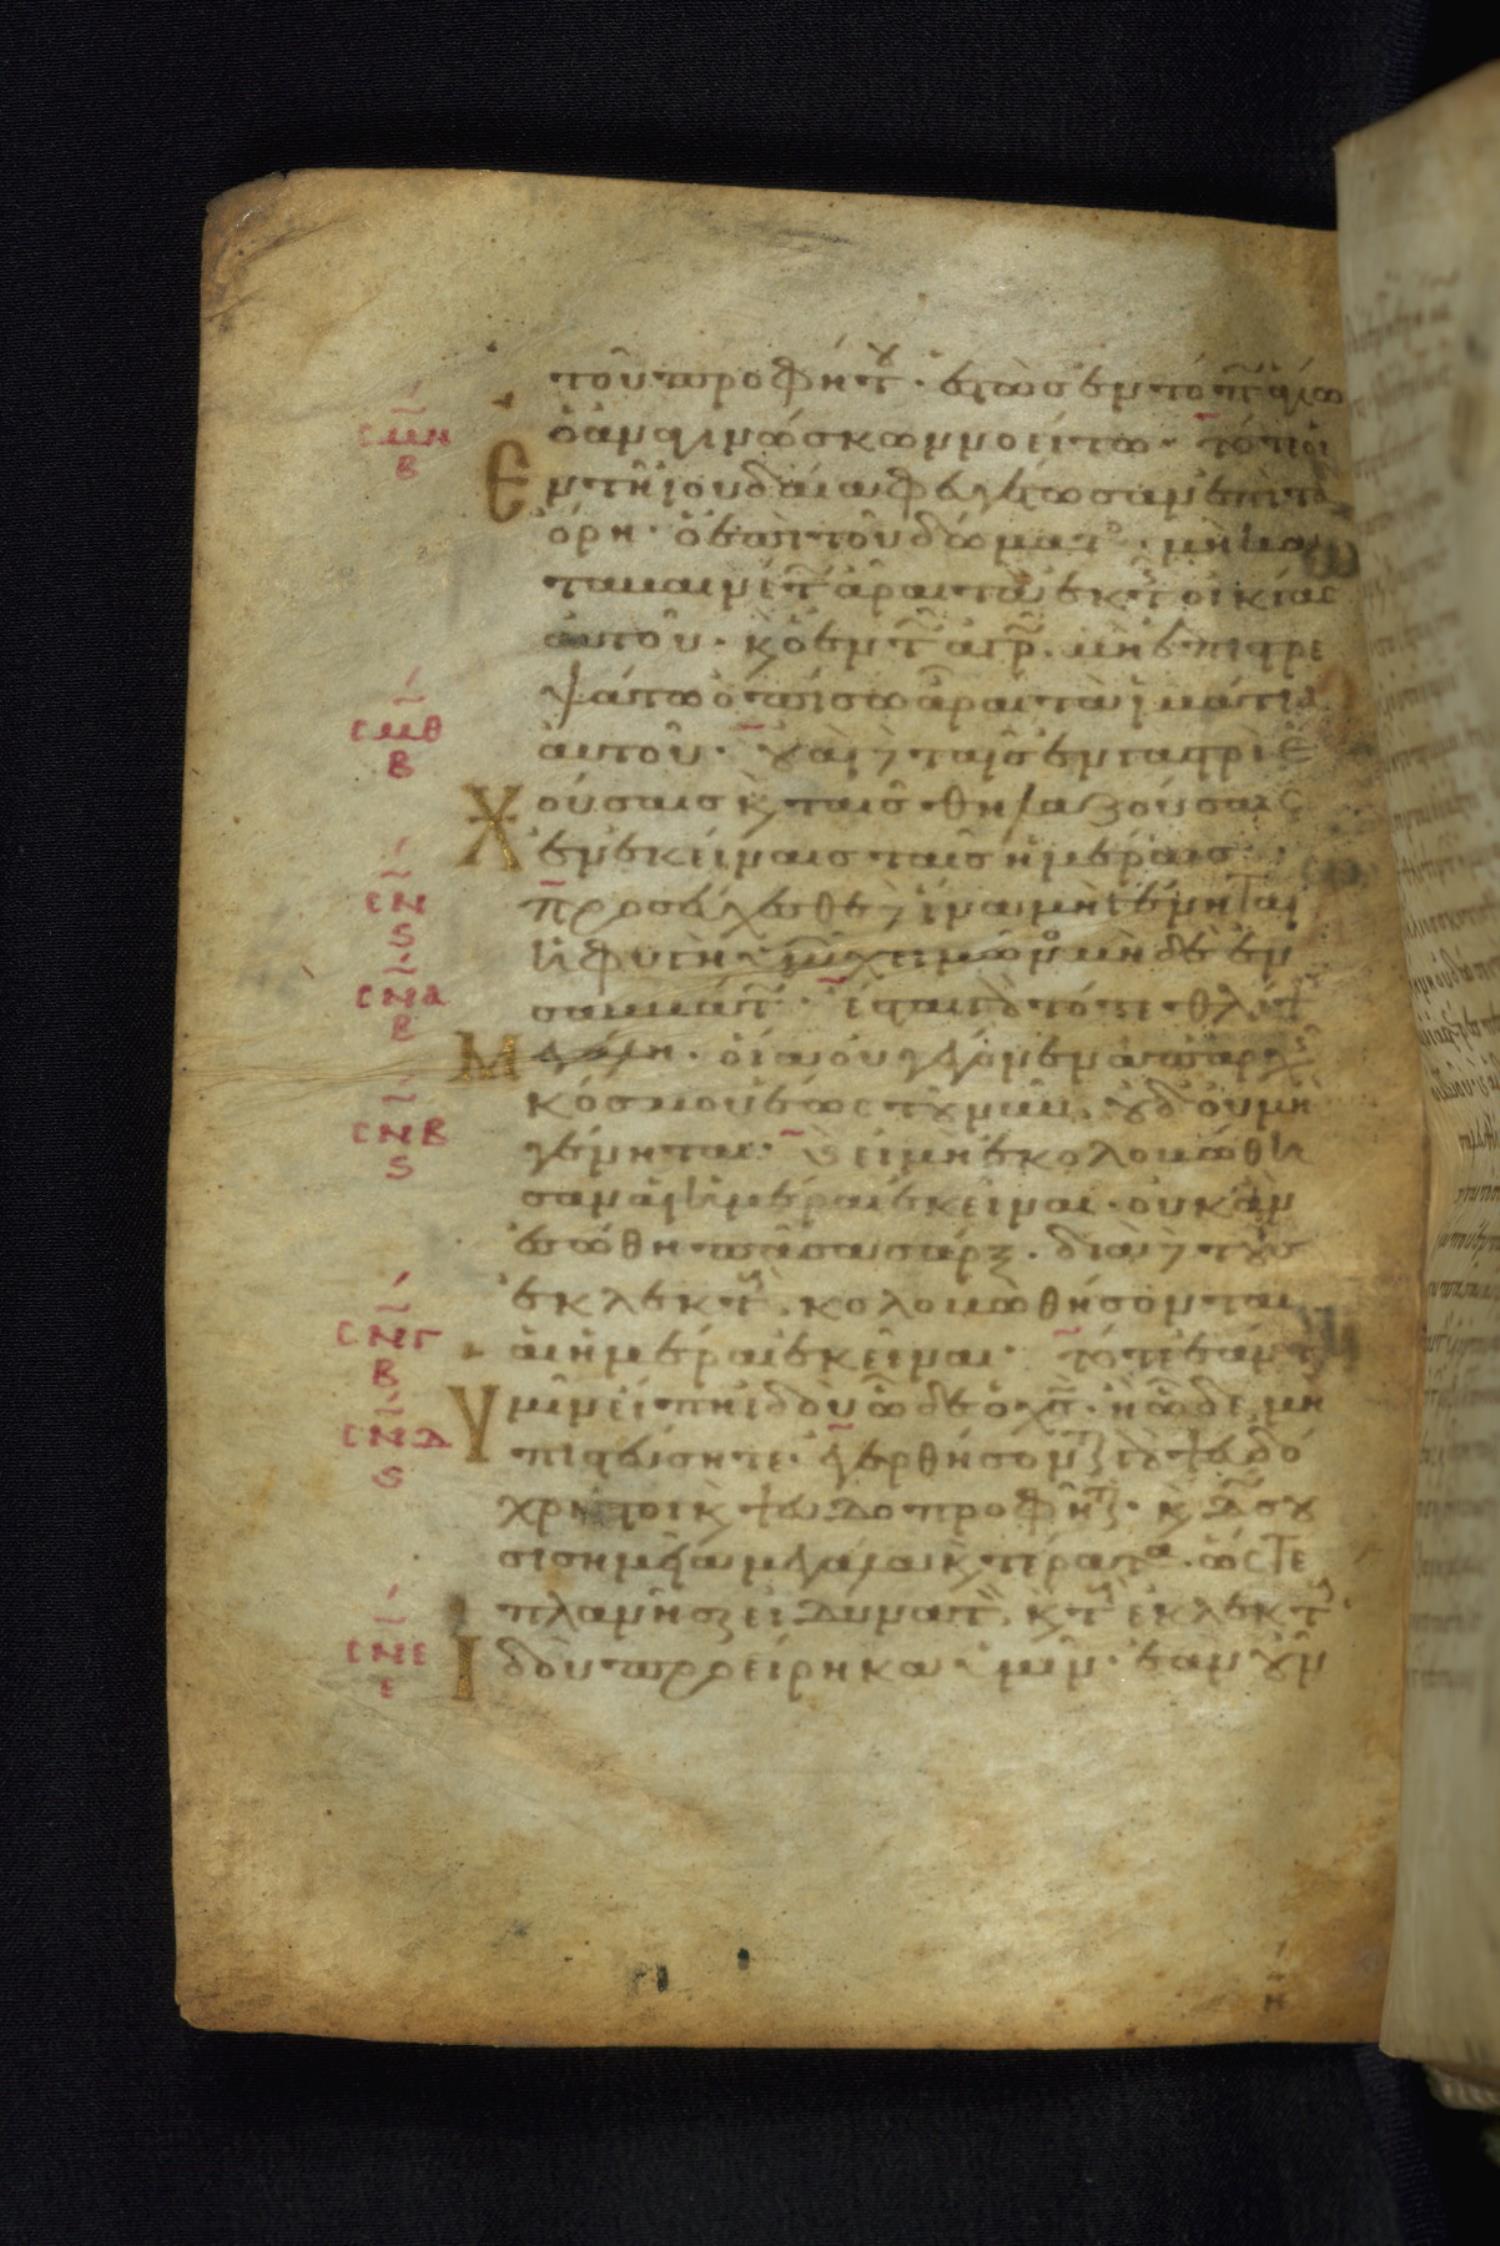 τοῦ προφήτου· ἑστὼς ἐν τόπω ἁγίω
ὁ ἀναγινώσκων νοείτω· τότε οἱ
ϹΜΗ Β
Ἐν τῇ ἰουδαία φευγέτωσαν ἐπὶ τὰ
ὄρη· ὁ ἐπὶ τοῦ δώματος· μὴ κα
ταβαινέτω ἆραι τὰ ἐκ τῆς οἰκίας
αὐτοῦ· κ ὁ ἐν τῶ ἀγρῶ· μὴ ἐπιστρε
ψάτω ὀπίσω ἆραι τὰ ἱμάτια
ϹΜΘ Β
αὐτοῦ· οὐαὶ δὲ ταῖς ἐν γαστρὶ ἐ
Χούσαις κ ταῖς θηλαζούσαις
ἐν ἐκείναις ταῖς ἡμέραις·
ϹΝ Ϛ
προσεύχεσθε δὲ ἵνα μὴ γένηται
ἡ φυγὴ ὑμῶν χειμῶνος μηδὲ ἐν
ϹΝΑ Β
σαββάτω· ἔσται γὰρ τότε θλίψις
Μεγάλη· οἵα οὐ γέγονεν ἀπ' ἀρχῆς
κόσμου ἕως τοῦ νῦν· οὐδ' οὐ μὴ
ϹΝΒ Ϛ
γένηται· κ εἰ μὴ ἐκολοβώθη
σαν αἱ ἡμέραι ἐκεῖναι· οὐκ ἂν
ἐσώθη πᾶσα σάρξ· διὰ δὲ τοὺς
ἐκλεκτοὺς· κολοβωθήσονται
ϹΝΓ Β
αἱ ἡμέραι ἐκεῖναι· τότε ἐάν τις
Ὑμῖν εἴπη ἰδοὺ ὧδε ὁ χς· ἢ ὧδε μὴ
ϹΝΔ Ϛ
πιστεύσητε· ἐγερθήσονται γὰρ ψευδό
χριστοι κ ψευδοπροφῆται· κ δώσου
σι σημεῖα μεγάλα κ τέρατα· ὥστε
πλανῆσαι εἰ δυνατὸν κ τοὺς ἐκλεκτούς·
ϹΝΕ Ι
Ἰδοὺ προείρηκα ὑμῖν· ἐὰν οὖν
Η